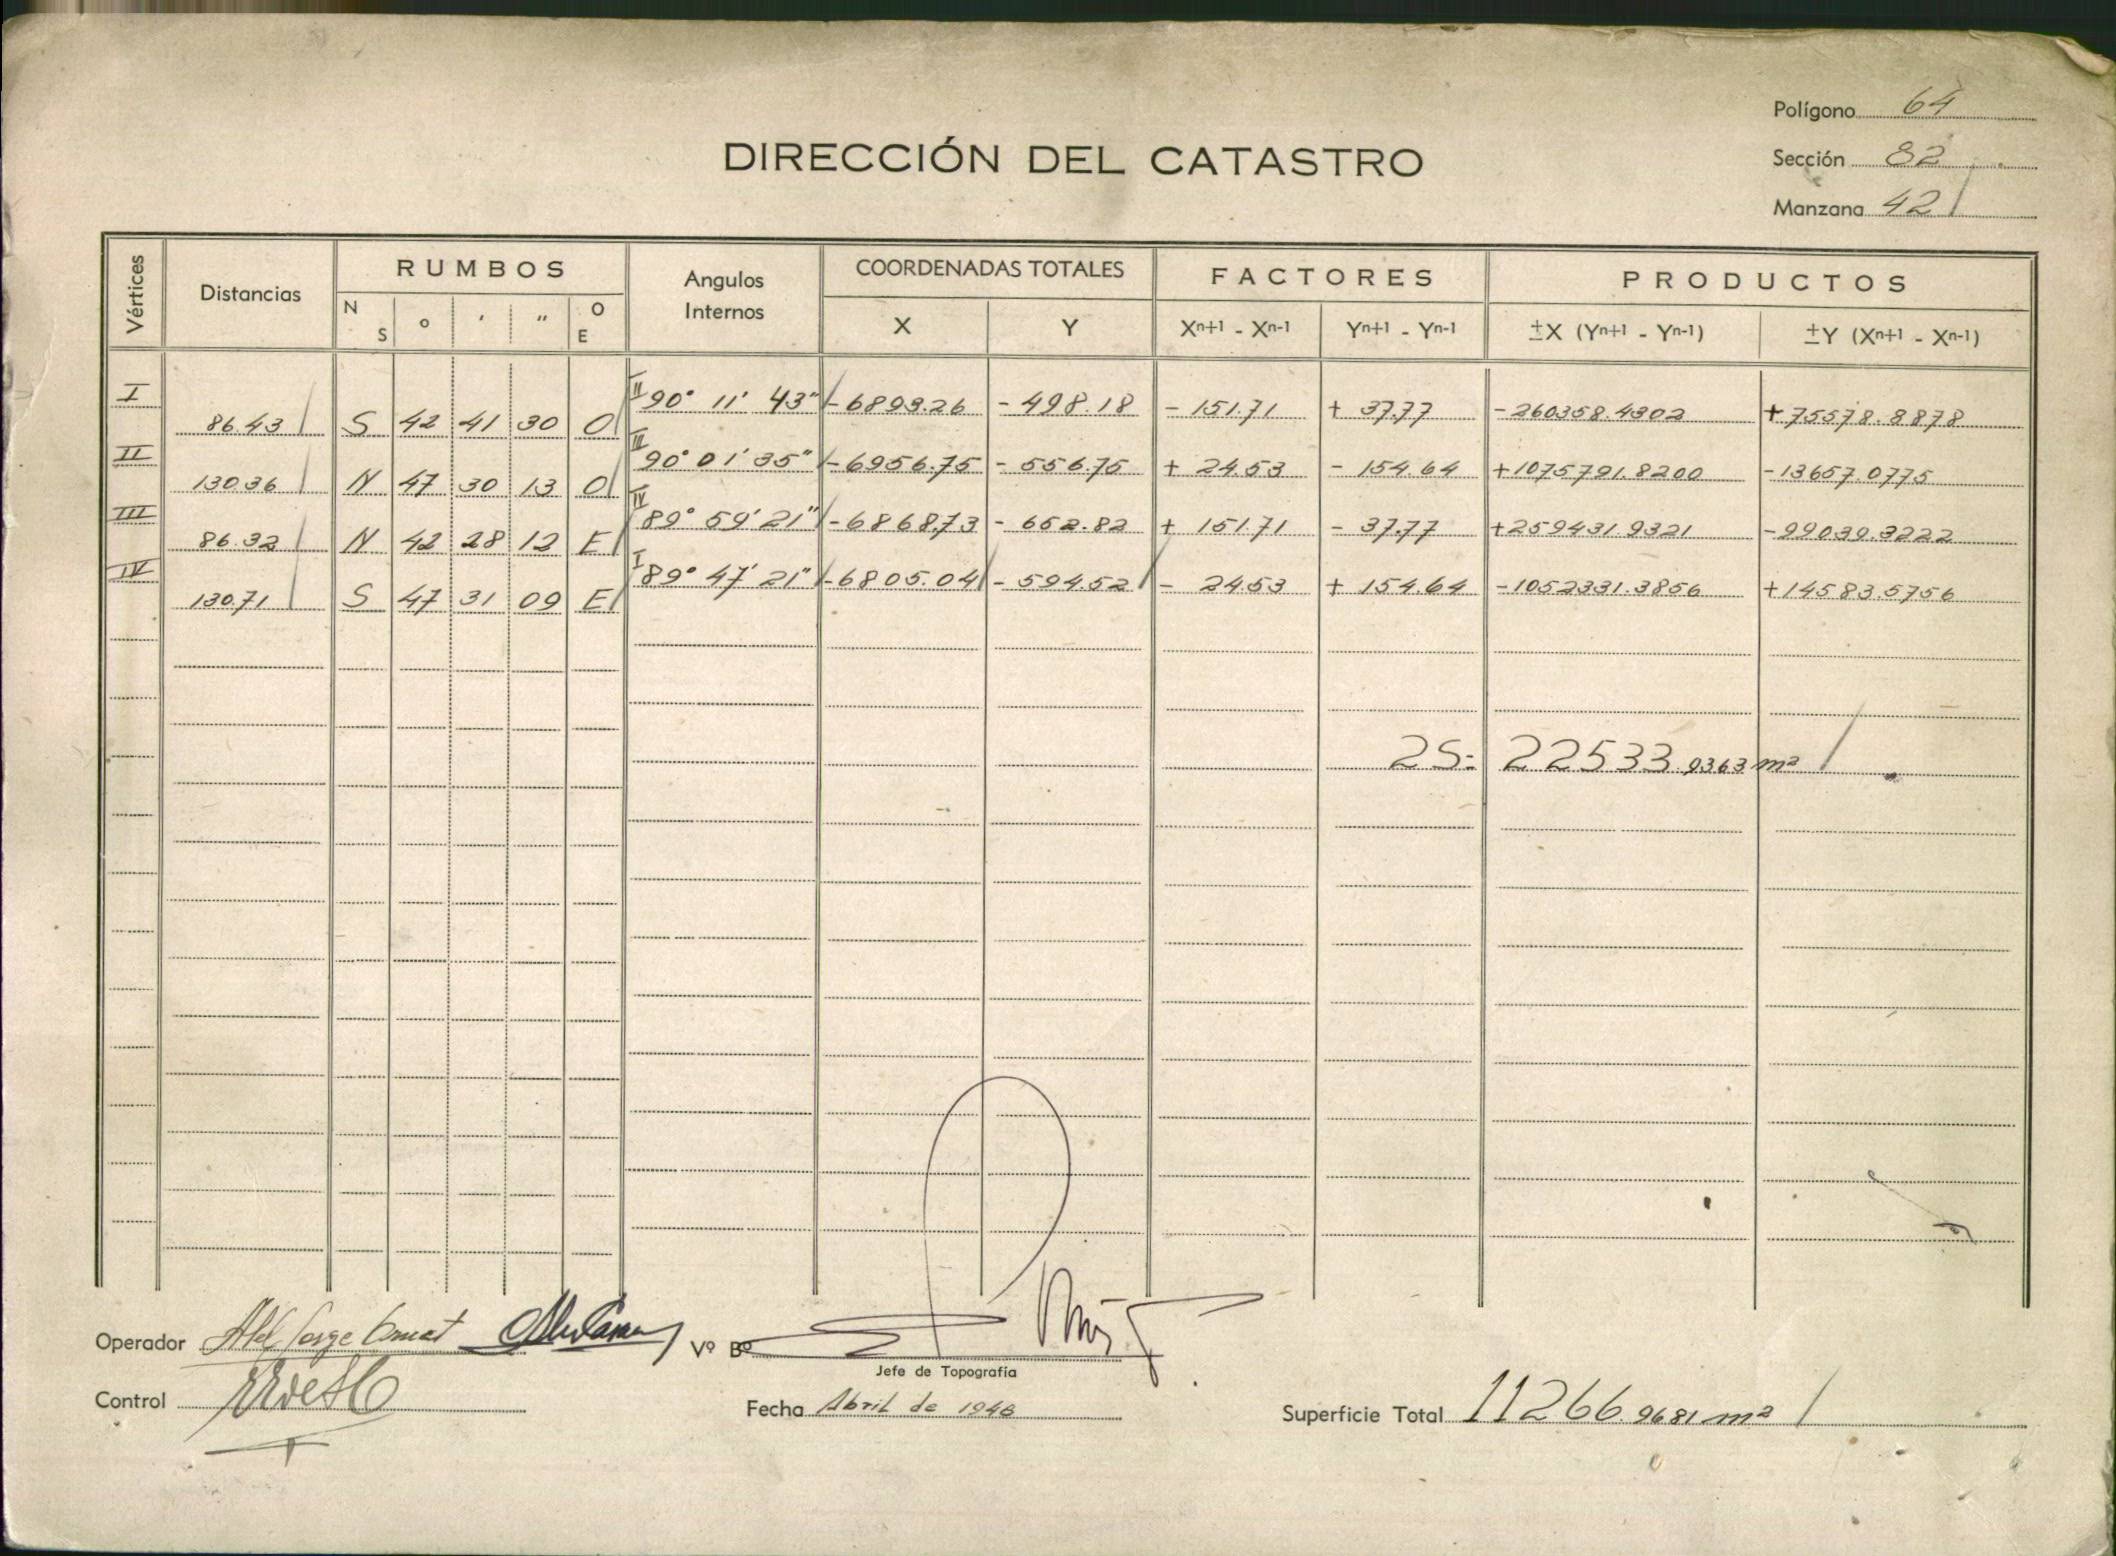 Polígono 64
DIRECCIÓN DEL CATASTRO
Sección 82
Manzana 42
Vértices Distancias RUMBOS Angulos Internos COORDENADAS TOTALES FACTORES PRODUCTOS
N S ° ' " O E X Y Xn+1 - Xn-1 Yn+1 - Yn-1 ±X (Yn+1 - Yn-1) ±Y (Xn+1 - Xn-1)
I 86.43 S 42 41 30 O II 90° 11' 43" -6893.26 - 498.18 - 151.71 + 37.77 -260358.4302 +75578.8878
II 130.36 N 47 30 13 O III 90° 01' 35" -6956.75 - 556.75 + 24.53 - 154.64 +1075791.8200 -13657.0775
III 86.32 N 42 28 12 E IV 89° 59' 21" -6868.73 - 652.82 + 151.71 - 37.77 +259431.9321 -99039.3222
IV 130.71 S 47 31 09 E I 89° 47' 21" -6805.04 - 594.52 - 24.53 + 154.64 -1052331.3856 +14583.5756
2S= 22533.9363 m²
Operador Vº Bº
Jefe de Topografía
Control
Fecha Abril de 1946
Superficie Total 11266.9681 m²